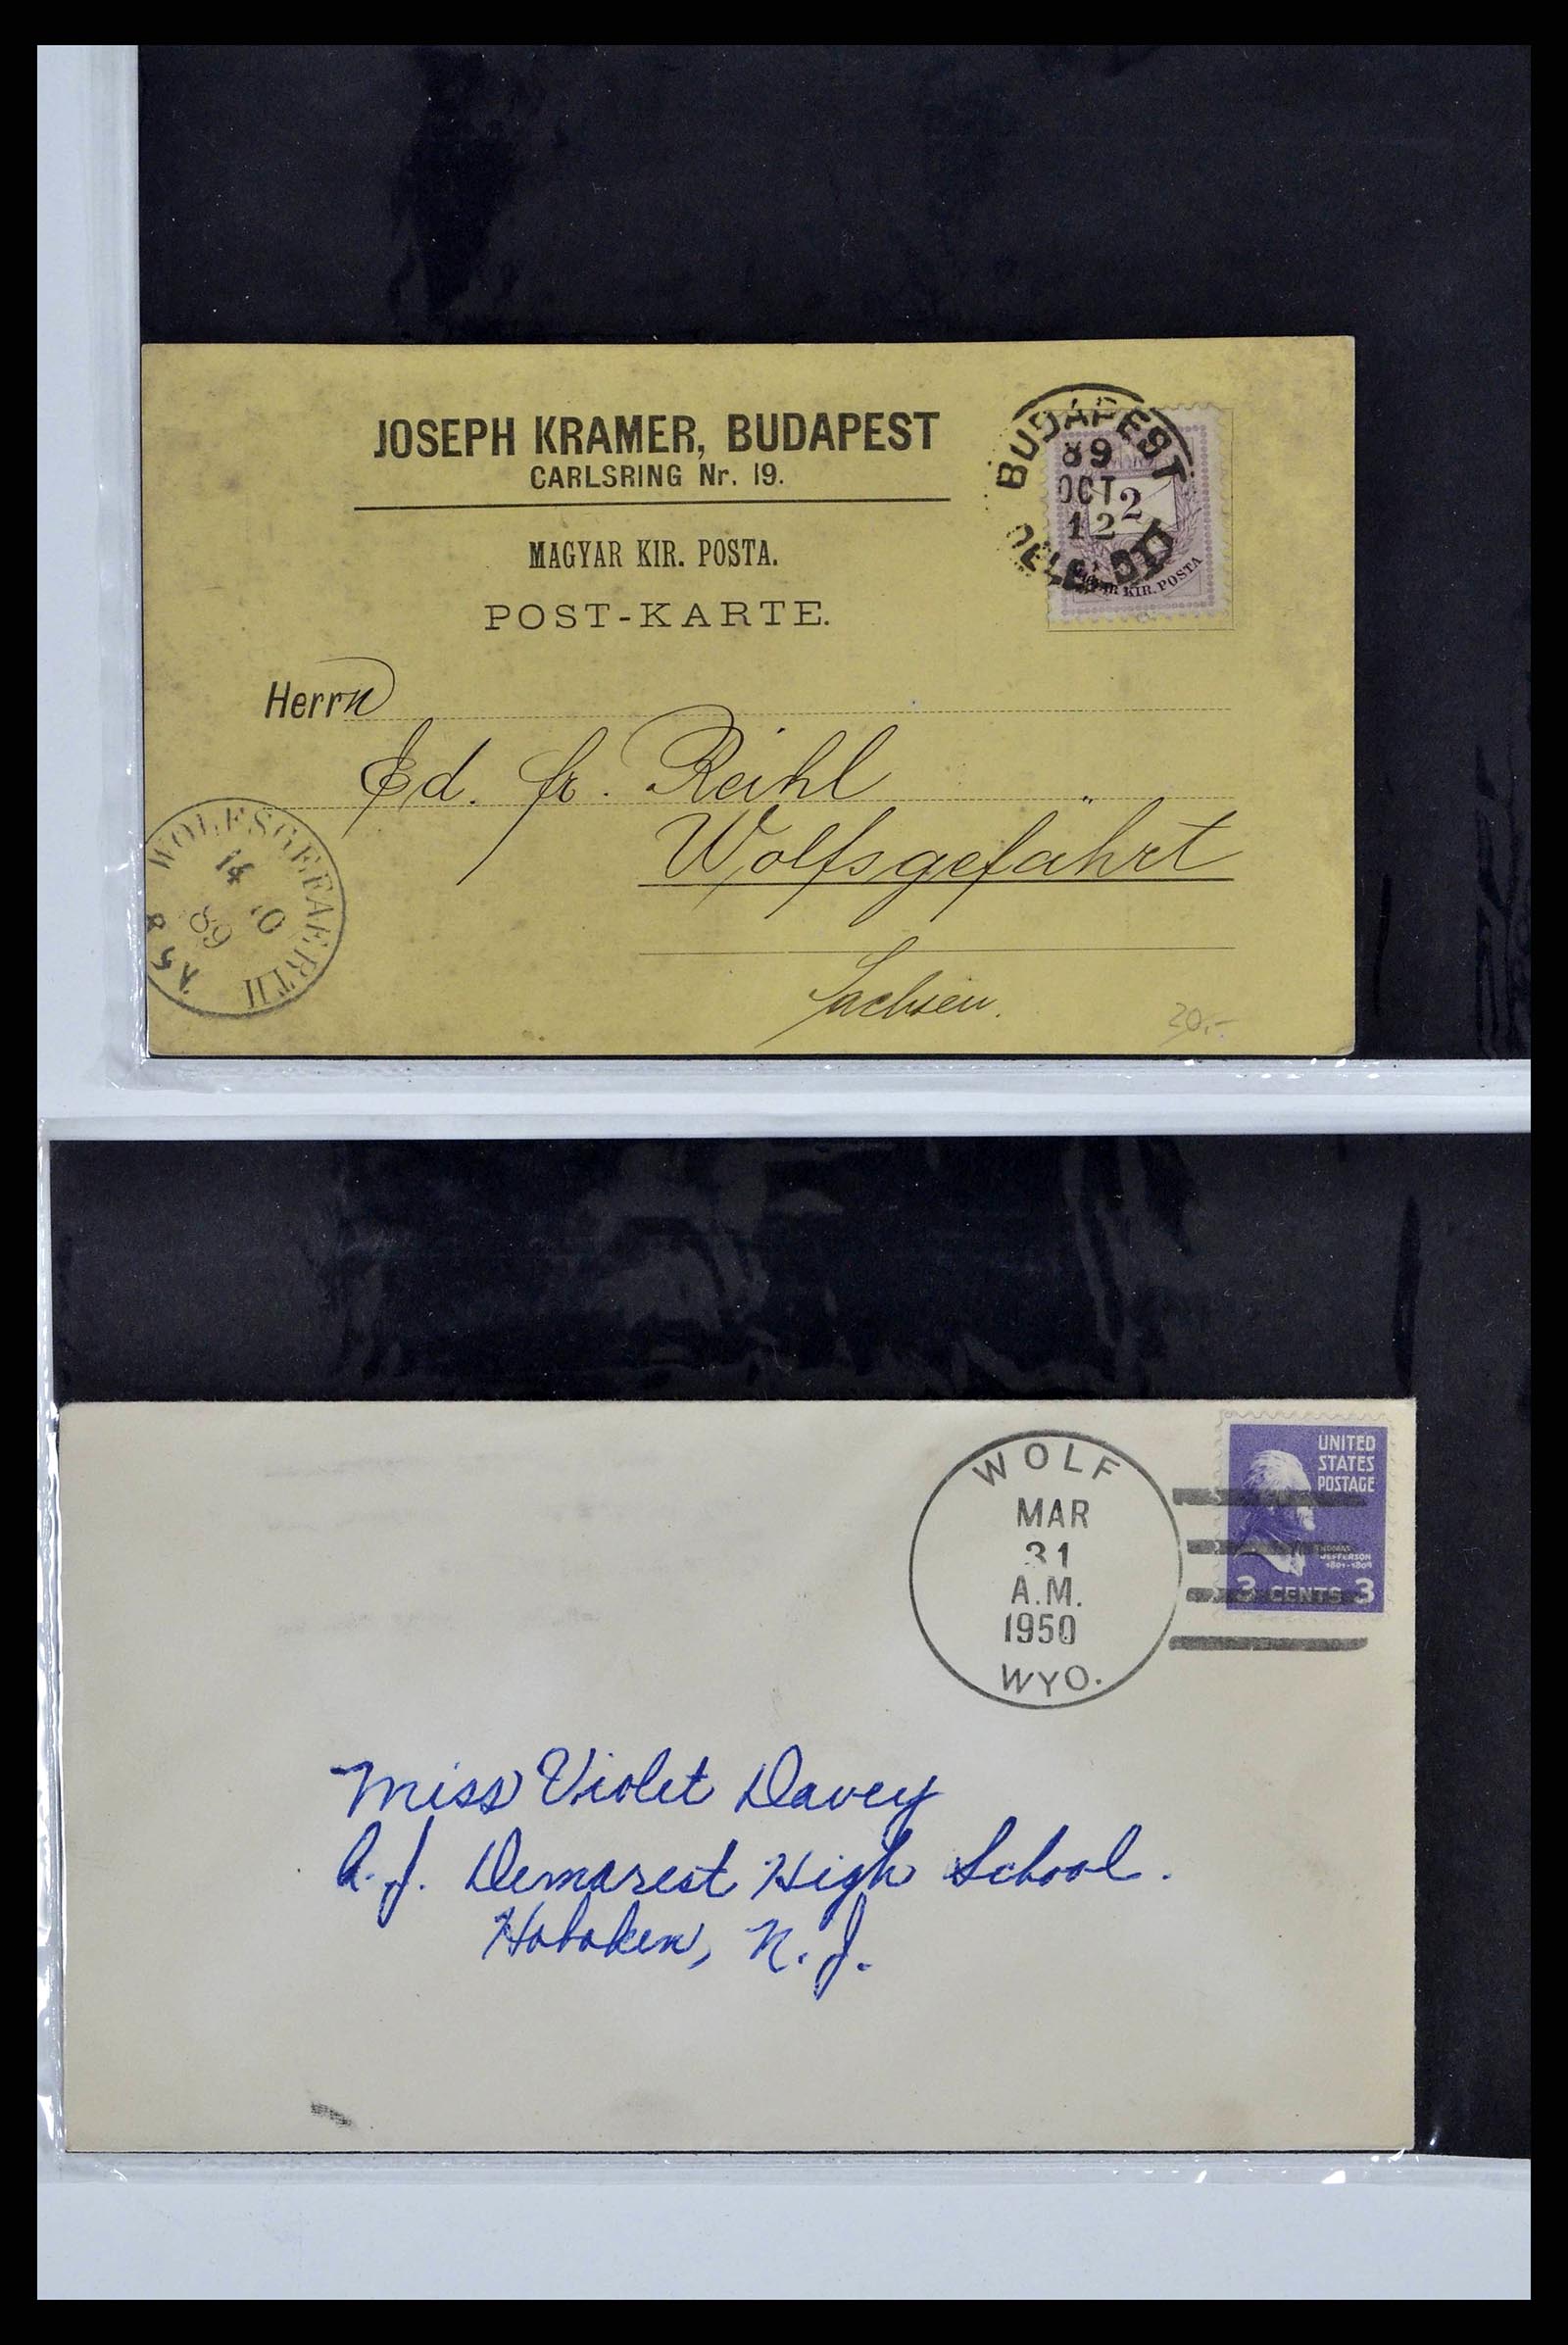 JOSEPH KRAMER, BUDAPEST
CARLSRING Nr. 19.
MAGYAR KIR. POSTA.
POST-KARTE.
BUDAPEST
89
OCT
12
2
KIR. POSTA
Herrn
Ed. fr. Reihl
Wolfsgefährt
Sachsen.
20.-
WOLFSGEFAERTH
14 10
89
WOLF
MAR
31
A.M.
1950
WYO.
UNITED
STATES
POSTAGE
THOMAS
JEFFERSON
1801-1809
3 CENTS 3
Miss Violet Davey
A. J. Demarest High School.
Hoboken, N. J.